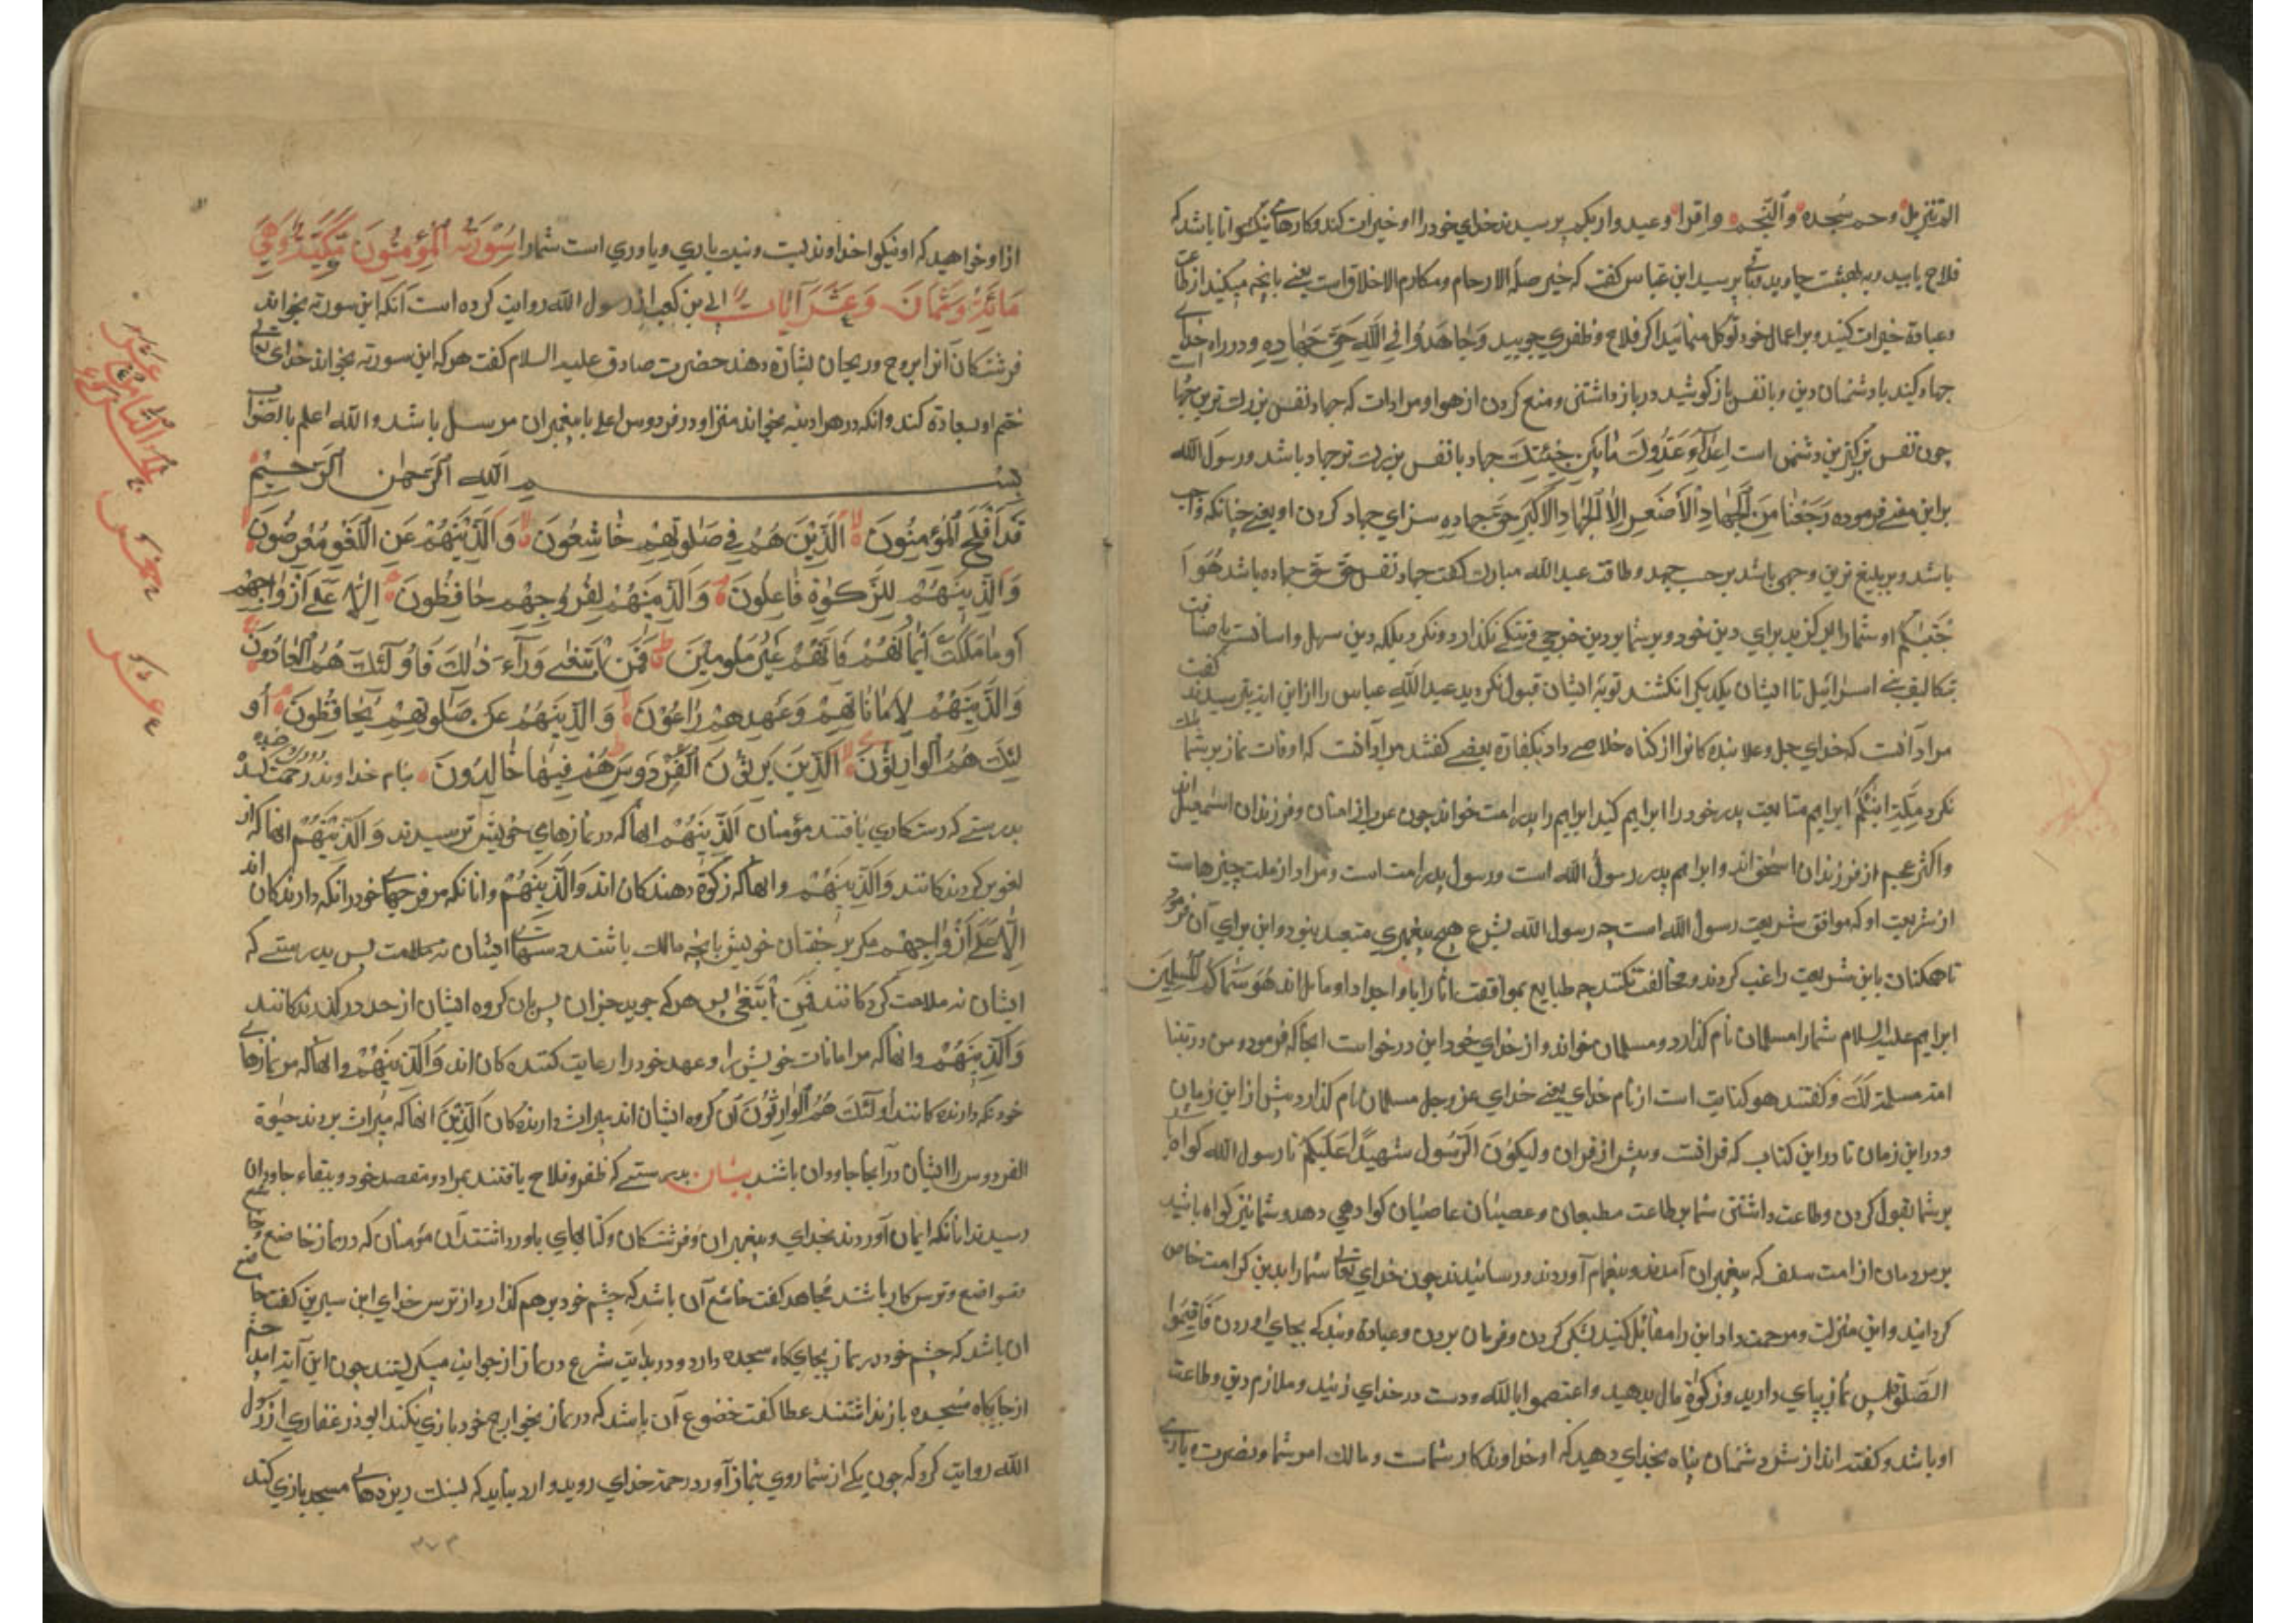 الم تنزیل وحم سجده والنجم واقرا وعبدوا ربکم بپرسید خدای خود را وخیرات کنید وکارهای نیکو تا باشد که
فلاح یابید وبه بهشت جاوید ابن عباس کفت که خیر صلة الارحام ومکارم الاخلاق است یعنی بانچه میکنید از
وعبادة خیرات کنید وبر اعمال خود توکل منمائید اکر فلاح وظفری جویید وَجَاهِدُوا فِي اللَّهِ حَقَّ جِهَادِهِ ودر راه خدای
جهاد کنید با دشمنان دین وبا نفس باز کوشید در باز داشتن ومنع کردن از هوا ومرادات که جهاد نفس بزرك ترین
چون نفس بزرکترین دشمن است جهاد با نفس بزرك تر جهاد باشد ورسول الله
براین معنی فرموده رَجَعْنَا مِنَ الْجِهَادِ الْأَصْغَرِ إِلَى الْجِهَادِ الْأَكْبَرِ حق جهاده سزای جهاد کردن او یعنی چنانکه واجب
باشد وبر بلیغ ترین وجهی باشد بر حسب جهد وطاقت عبد الله مبارك کفت جهاد نفس حق جهاده باشد هُوَ ا
جْتَبٰکُم او شما را برکزید برای دین خود وبر شما بر دین حرجی وتنکی نکذارد ونکرد بلکه دین سهل واسانست
تکالیف بنی اسرائیل تا ایشان یکدیکر انکشتند توبۀ ایشان قبول نکردید عبد الله عباس را از این ایت پرسیدند کفت
مراد آنست که خدای جل وعلا بنده کانرا از کناه خلاصی داد بکفارة بعضی کفتند مراد آنست که اوقات نماز بر شما
نکرد مِلَّةَ اَبِیکُمْ ابراهیم متابعت پدر خود را ابراهیم کنید ابراهیم را پدر امت خواند چون عرب امتان وفرزندان اسمعیل اند
واکثر عجم از فرزندان اسحق اند وابراهیم پدر رسول الله است ورسول پدر امت است ومراد از ملت چیزهاست
از شریعت او که موافق شریعت رسول الله است چه رسول الله بشرع هیچ پیغمبری متعبد نبود واین برای آن فرمود
تا همکنان باین شریعت راغب کردند ومخالفت نکنند چه طبایع بموافقت آبا واجداد مایل اند هُوَ سَمَّاكُمُ الْمُسْلِمِينَ
ابراهیم علیه السلام شما را مسلمان نام کذارد ومسلمان خواند واز خدای خود این درخواست انجا که فرمود ومن ذریتنا
امة مسلمة لَكَ وکفتند هو کنایت است از نام خدای یعنی خدای عز وجل مسلمان نام کذارد پیش از این زمان
ودر این زمان تا در این کتاب که قرانست وپیش از قران وَلِيَكُونَ الرَّسُولُ شَهِيدًا عَلَيْكُمْ تا رسول الله کواه
بر شما بقبول کردن وطاعت داشتن شما بر طاعت مطیعان وعصیان عاصیان کواهی دهد وشما نیز کواه باشید
بر مردمان از امت سلف که پیغمبران آمدند وپیغام آوردند ورسانیدند چون خدای تعالی شما را بدین کرامت خاص
کردانید واین منزلت ومرحمت داد این را مقابل کنید بشکر کردن وفرمان بردن وعبادة وبندکی بجای اوردن فَأَقِيمُوا
الصَّلٰوة پس نماز بپای دارید وزکوة مال بدهید واعتصموا بالله ودست در خدای زنید وملازم دین وطاعت
او باشید وکفته اند از شر دشمنان پناه بخدای دهید که او خداوند کار شماست ومالك امر شما ونصرت ویاری
از او خواهید که او نیکو خداوندیست ونیك یاری ویاوری است شما را سُورَةُ الْمُؤْمِنُونَ مَكِّيَّةٌ وَهِيَ
مِائَةٌ وَثَمَانَ وَعَشَرَ آيَاتٍ ابی بن کعب از رسول الله روایت کرده است آنکه این سورته بخواند
فرشتکان آنرا بروح وریحان بشارة دهند حضرت صادق علیه السلام کفت هر که این سورته بخواند خدای تعالی
ختم او بسعادة کند وانکه در هر ادینه بخواند منزل او در فردوس اعلی با پیغمبران مرسل باشد والله اعلم بالصواب
بِسْمِ اللَّهِ الرَّحْمٰنِ الرَّحِيمِ
قَدْ أَفْلَحَ الْمُؤْمِنُونَ الَّذِينَ هُمْ فِي صَلٰوتِهِمْ خَاشِعُونَ وَالَّذِينَهُمْ عَنِ اللَّغْوِ مُعْرِضُونَ
وَالَّذِينَهُمْ لِلزَّكٰوةِ فَاعِلُونَ وَالَّذِينَهُمْ لِفُرُوجِهِمْ حَافِظُونَ إِلَّا عَلٰى أَزْوَاجِهِمْ
أَوْ مَا مَلَكَتْ أَيْمَانُهُمْ فَإِنَّهُمْ غَيْرُ مَلُومِينَ فَمَنِ ابْتَغٰى وَرَآءَ ذٰلِكَ فَأُولٰٓئِكَ هُمُ الْعَادُونَ
وَالَّذِينَهُمْ لِأَمَانَاتِهِمْ وَعَهْدِهِمْ رَاعُونَ وَالَّذِينَهُمْ عَلٰى صَلَوٰتِهِمْ يُحَافِظُونَ أُو
لٰئِكَ هُمُ الْوَارِثُونَ الَّذِينَ يَرِثُونَ الْفِرْدَوْسَ هُمْ فِيهَا خَالِدُونَ بنام خداوند رحمت کننده
بدرستی که رستکاری یافتند مؤمنان الَّذِينَهُمْ انها که در نمازهای خویش ترسیدند وَالَّذِينَهُمْ انها که از
لغو بر کردندکانند وَالَّذِينَهُمْ وانها که زکوة دهندکان اند وَالَّذِينَهُمْ وانانکه مر فرجهای خود را نکه دارندکان اند
إِلَّا عَلٰى أَزْوَاجِهِمْ مکر بر جفتان خویش یا انچه مالك باشند دستهای ایشان نه ملامت پس بدرستی که
ایشان نه ملامت کردکانند فَمَنِ ابْتَغٰى پس هر که جوید جز ان پس ان کروه ایشان از حد در کذرندکانند
وَالَّذِينَهُمْ وانها که مر امانات خویش را وعهد خود را رعایت کننده کان اند وَالَّذِينَهُمْ وانها که مر نمازهای
خود نکه دارنده کانند أُولٰئِكَ هُمُ الْوَارِثُونَ آن کروه ایشان اند میراث دارنده کان الَّذِينَ انها که میراث بردند جنة
الفردوس را ایشان در آنجا جاودان باشند بیان بدرستی که ظفر وفلاح یافتند بمراد ومقصد خود وببقاء جاودان
رسیدند انانکه ایمان آوردند بخدای وپیغمبران وفرشتکان وکتابهای باور داشتند آن مؤمنان که در نماز خاضع
متواضع وترس کار باشند مُجاهد کفت خاشع آن باشد که چشم خود بر هم کذارد از ترس خدای ابن سیرین کفت خاشع
ان باشد که چشم خود در نماز بجایکاه سجده دارد ودر بدایت شرع در نماز از جوانب میکریستند چون این آیت امد چشم
از جایکاه سجده باز نداشتند عطا کفت خضوع آن باشد که در نماز بجوارح خود بازی نکند ابو ذر غفاری از رسول
الله روایت کرد که چون یکی از شما روی بنماز آورد رحمة خدای روی بدو ارد نباید که بسنك ریزهای مسجد بازی کند